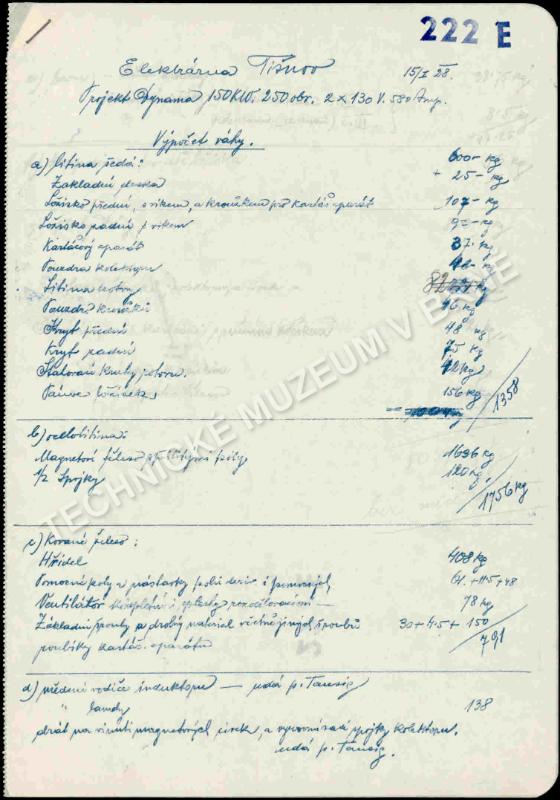 222 E
Elektrárna Tišnov 15/I 28.
Projekt Dynama 150KW. 250 obr. 2 x 130 V. 580 Amp.
Výpočet váhy.
a) litina šedá: 600- kg
Základní deska + 25- kg
Ložisko přední, s víkem, a kroužkem pro kartáč. aparát 107- kg
Ložisko zadní s víkem kg
Kartáčový aparát 37- kg
Pouzdro kolektoru kg
Litina 82 kg
Pouzdro kroužků 16 kg
Kryt přední 48 kg
Kryt zadní 75 kg
Statorové kruhy rotoru. 12 kg
Pánve ložiskové 156 kg
1358
b) ocelolitina:
Magnetové těleso póly 1636 kg
1/2 Spojky 120 kg
1756 kg
c) Kované železo:
Hřídel 408 kg
Pomocné póly a nástavky pólů deriv. i pomocných 61.+115+48
Ventilátor 78 kg
Základní šrouby a drobný materiál včetně jiných šroubů 30+45+150
kartáč. aparátu 791
d) měděné vodiče induktoru — udá p.
" bandy 138
drát na vinutí magnetových cívek, a spojky kolektoru.
udá p.
TECHNICKÉ MUZEUM V BRNĚ